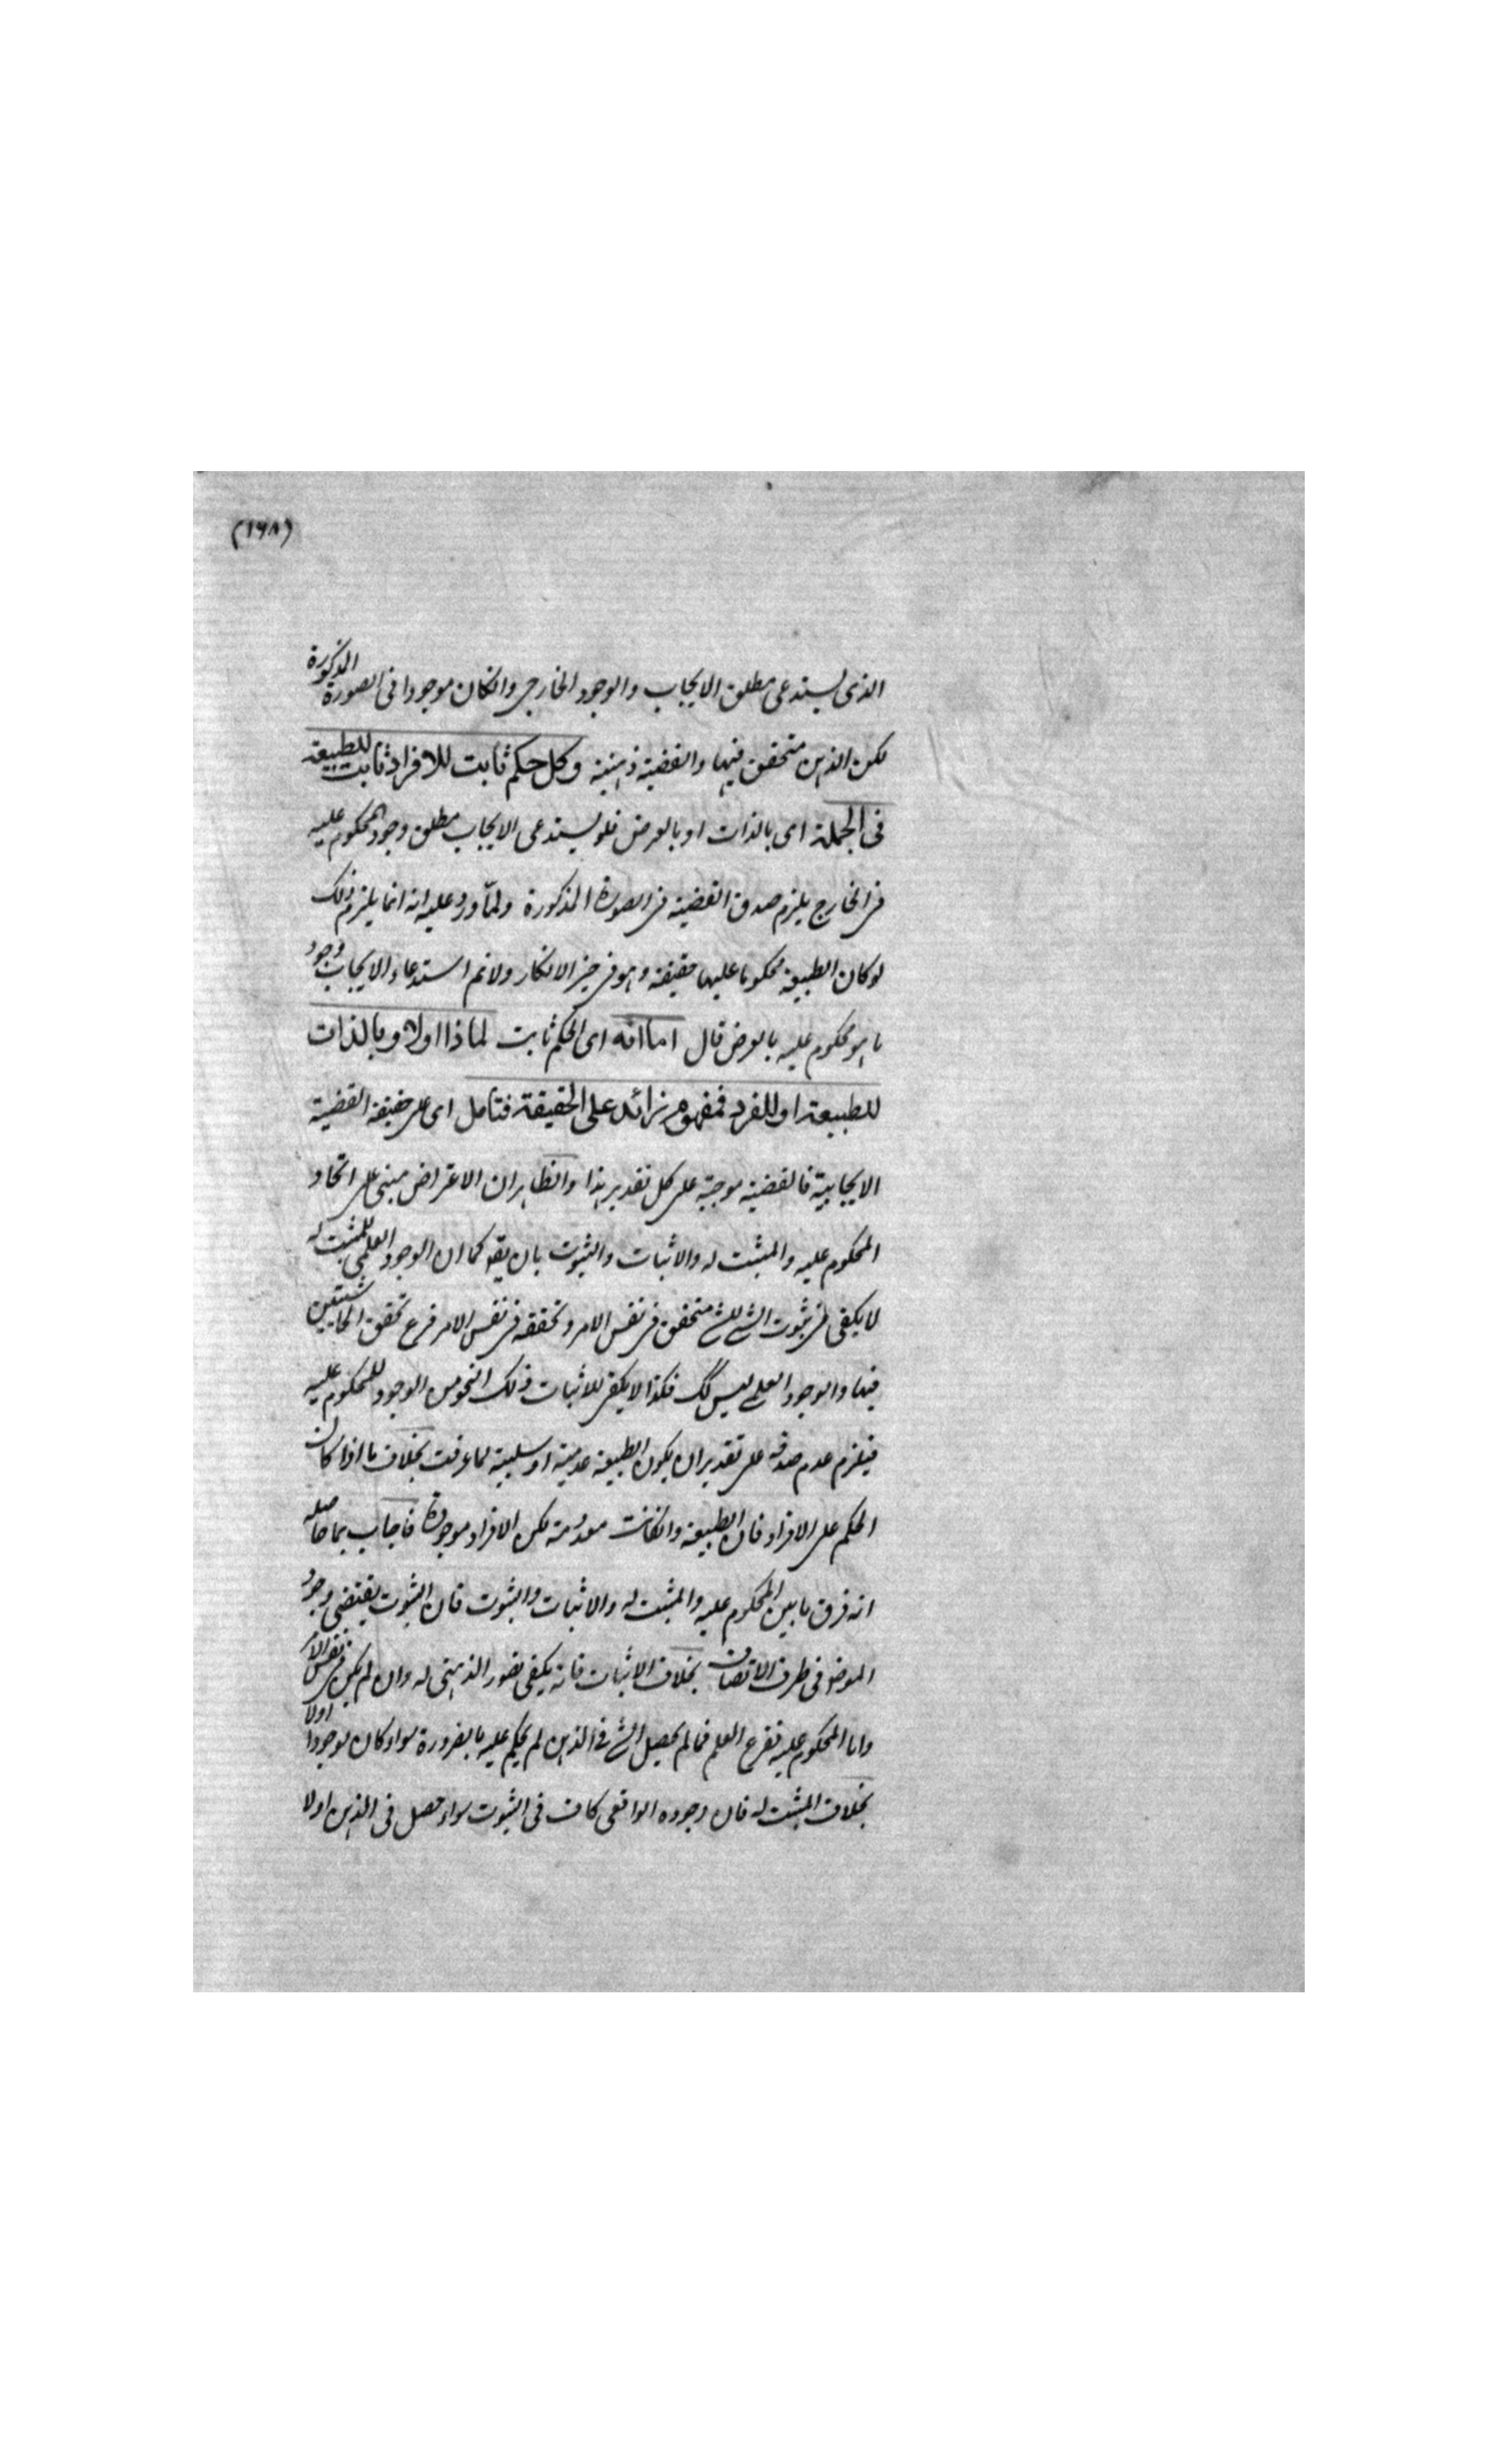 (١٦٨)
الذى يستدعى مطلق الايجاب والوجود الخارجى وانكان موجودا فى الصورة المذكورة
لكن الذهن متحقق فيها والقضية ذهنية وكل حكم ثابت للافراد ثابت للطبيعة
فى الجملة اى بالذات او بالعرض فلو يستدعى الايجاب مطلق وجود المحكوم عليه
فى الخارج يلزم صدق القضية فى الصورة المذكورة ولمّا ورد عليه انه انما يلزم ذلك
لو كان الطبيعة محكوما عليها حقيقة وهو فى حيز الانكار ولانم استدعاء الايجاب وجود
ما هو محكوم عليه بالعرض قال اما انه اى الحكم ثابت لماذا اولا وبالذات
للطبيعة او للفرد فمفهوم زائد على الحقيقة فتامل اى على حقيقة القضية
الايجابية فالقضية موجبة على كل تقدير هذا والظاهر ان الاعتراض مبنى على اتحاد
المحكوم عليه والمثبت له والاثبات والثبوت بان يقو كما ان الوجود العلمى للمثبت له
لا يكفى لثبوت الشئ للشئ متحقق فى نفس الامر وتحققه فى نفس الامر فرع تحقق الحاشيتين
فيها والوجود العلمى ليس كك فكذا لا يكفى للاثبات ذلك النحو من الوجود للمحكوم عليه
فيلزم عدم صدقه على تقدير ان يكون الطبيعة عدمية او سلبية لما عرفت بخلاف ما اذا كان
الحكم على الافراد فان الطبيعة وانكانت معدومة لكن الافراد موجودة فاجاب بما حاصله
انه فرق ما بين المحكوم عليه والمثبت له والاثبات والثبوت فان الثبوت يقتضى وجود
الموضو فى ظرف الاتصاف بخلاف الاثبات فانه يكفى تصور الذهنى له وان لم يكن فى نفس الامر
واما المحكوم عليه فتفرع العلم فما لم يحصل الشئ فى الذهن لم يحكم عليه بالضرورة سواء كان موجودا اولا
بخلاف المثبت له فان وجوده الواقعى كاف فى الثبوت سواء حصل فى الذهن اولا